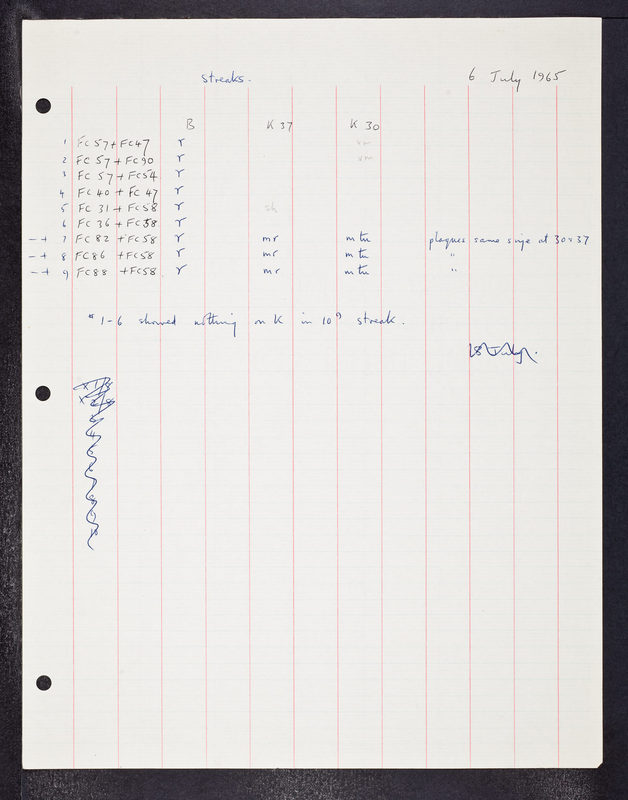 streaks. 6 July 1965
B K 37 K 30
1 FC 57 + FC 47 r vm
2 FC 57 + FC 90 r vm
3 FC 57 + FC 54 r
4 FC 40 + FC 47 r
5 FC 31 + FC 58 r
6 FC 36 + FC 58 r
- + 7 FC 82 + FC 58 r mr m tu plaques same size at 30 + 37
- + 8 FC 86 + FC 58 r mr m tu "
- + 9 FC 88 + FC 58 r mr m tu "
* 1-6 showed nothing on K in 10⁹ streak.